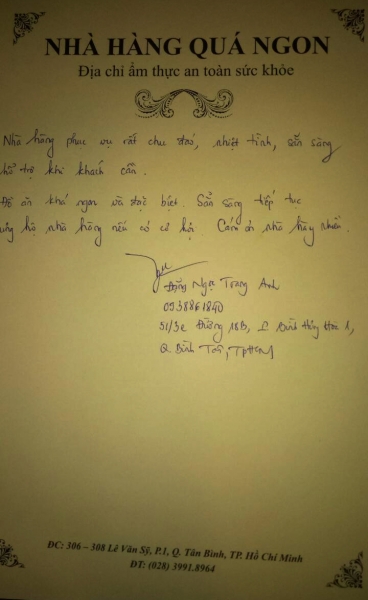 NHÀ HÀNG QUÁ NGON
Địa chỉ ẩm thực an toàn sức khỏe
Nhà hàng phục vụ rất chu đáo, nhiệt tình, sẵn sàng
hỗ trợ khi khách cần.
Đồ ăn khá ngon và đặc biệt. Sẵn sàng tiếp tục
ủng hộ nhà hàng nếu có cơ hội. Cám ơn nhà hàng nhiều.
Đặng Ngọc Trang Anh
0938861840
51/3c Đường 18B, Bình Hưng Hoà A,
Q. Bình Tân, TPHCM
ĐC: 306 – 308 Lê Văn Sỹ, P.1, Q. Tân Bình, TP. Hồ Chí Minh
ĐT: (028) 3991.8964